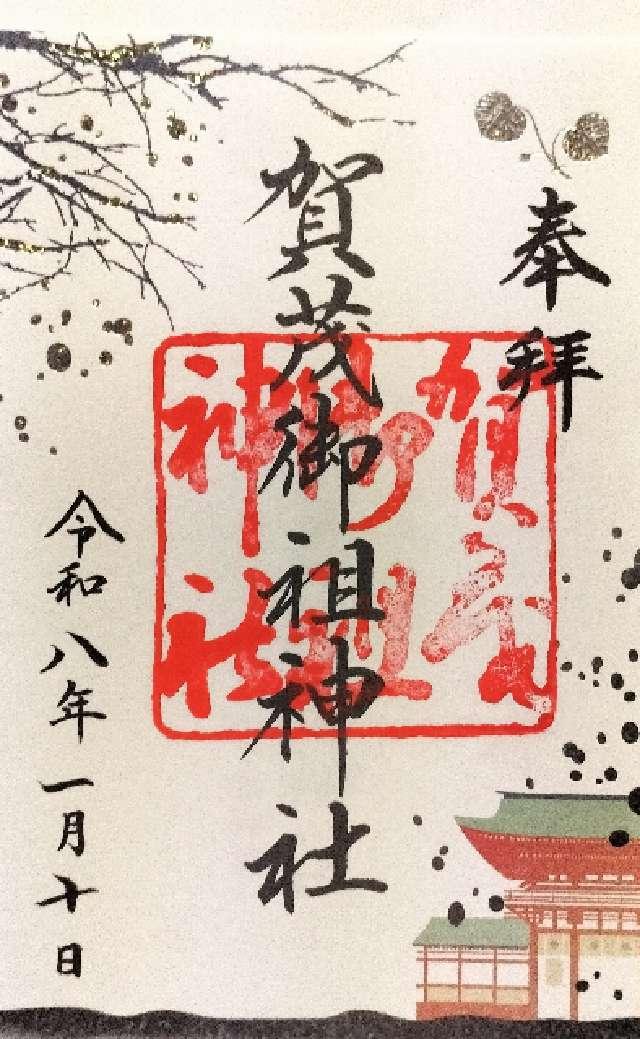 奉拝
賀茂御祖神社
賀茂
御祖
神社
令和八年一月十日